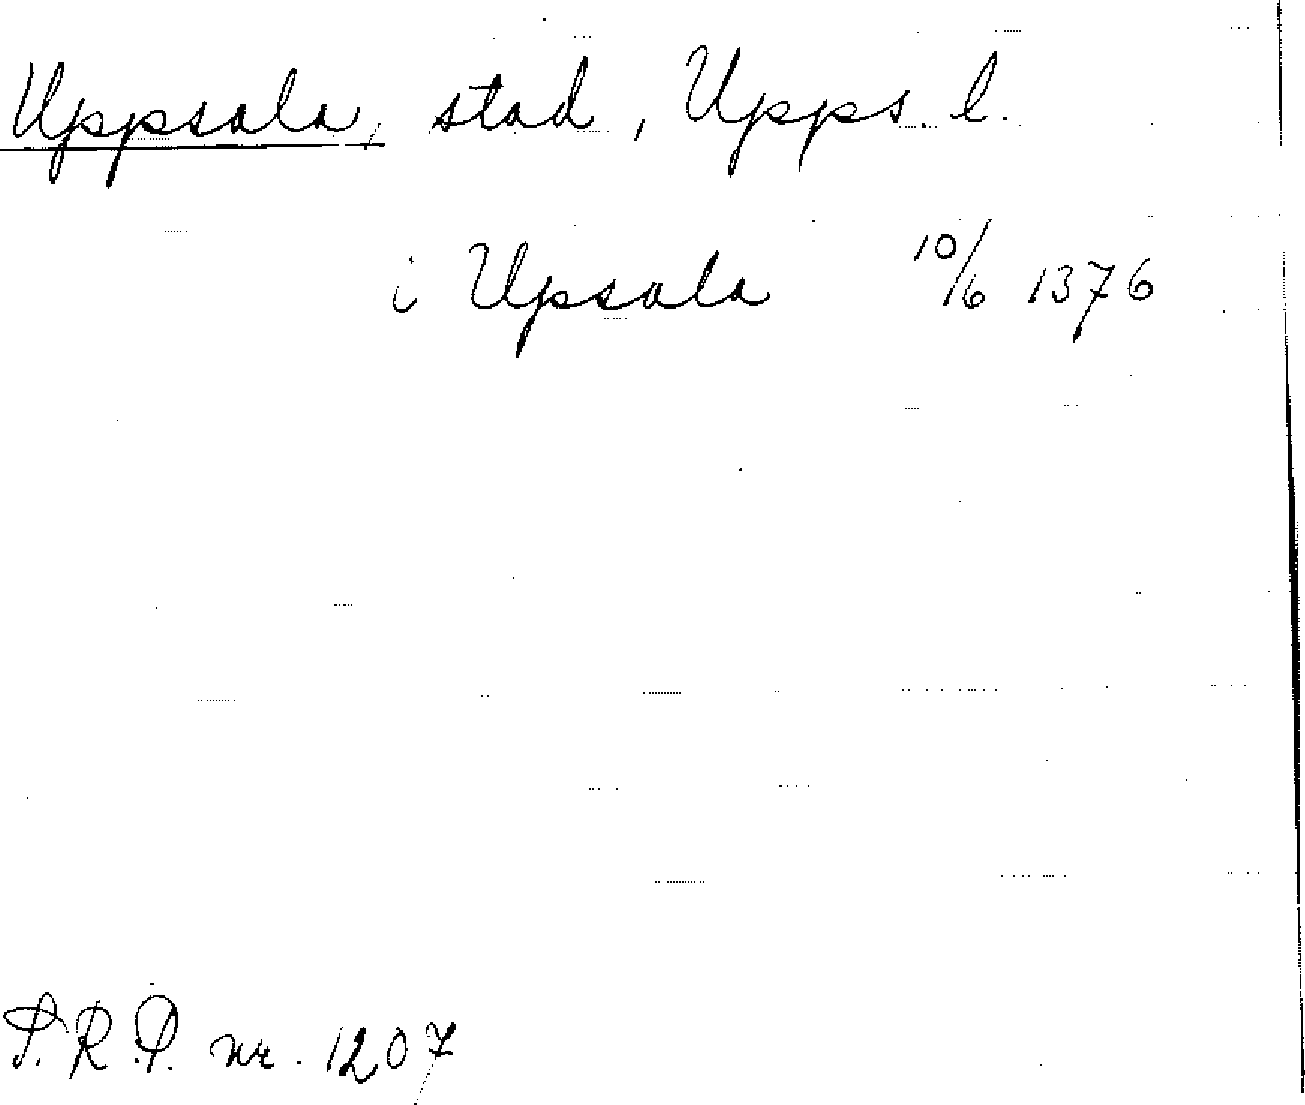 Uppsala, stad, Upps. l.
i Upsala 10/6 1376
S.R.P. nr. 1207